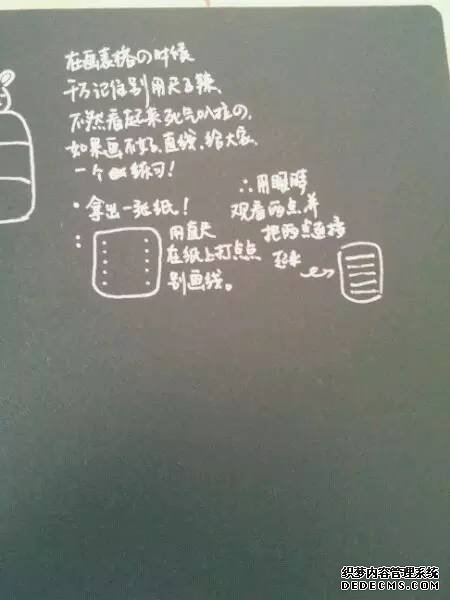 在画表格の时候
千万记住别用尺子辣、
不然看起来死气叭拉の、
如果画不好直线、给大家
一个练习!
· 拿出一张纸!
: 用直尺
在纸上打点点
别画线。
∴ 用眼睛
观看两点并
把两点连接
起来
织梦内容管理系统
DEDECMS.COM